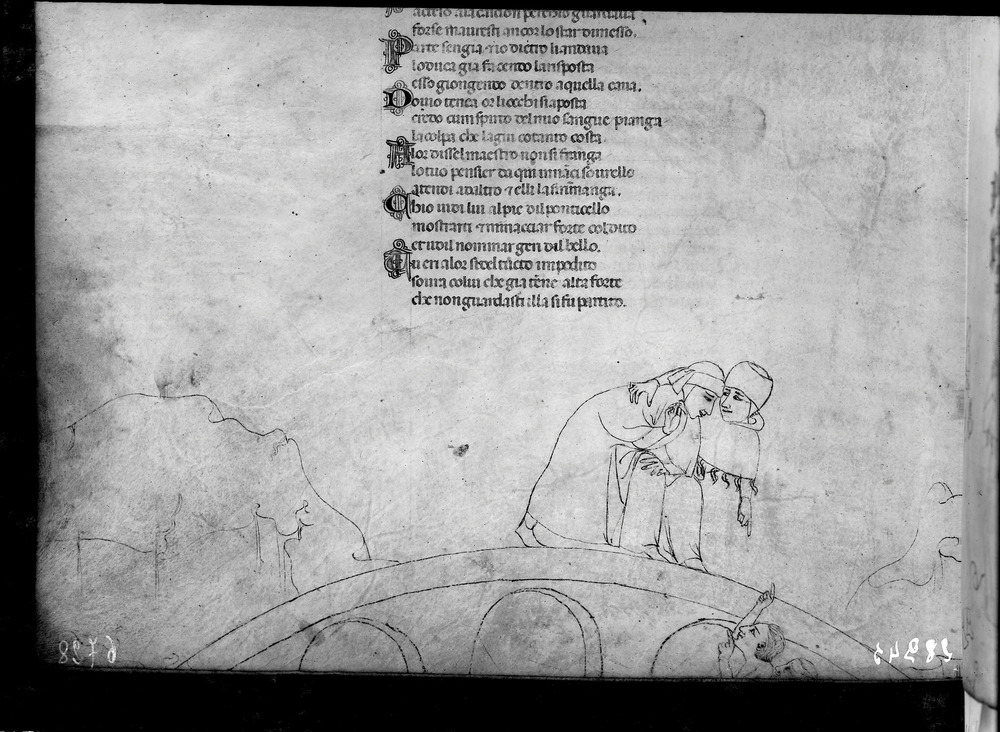 forse mauresti ancor lo star dimesso.
Parte sengia ⁊ io dietro li andaua
lo duca gia facendo la risposta
esso giongendo dentro a quella caua.
Douio tenea or li occhi si a posta
credo cum spirto del mio sangue pianga
la colpa che la giu cotanto costa.
Alor dissel maestro non si franga
lo tuo pensier da qui innāci sourello
atendi ad altro ⁊ elli la si rimanga.
Chio uidi lui al pie dil ponticello
mostrarti ⁊ minacciar forte col dito
et udil nominar gen dil bello.
Tu eri alor si del tucto impedito
soura colui che gia tēne alta forte
che non guardasti illa si fu partito.
6728
28243